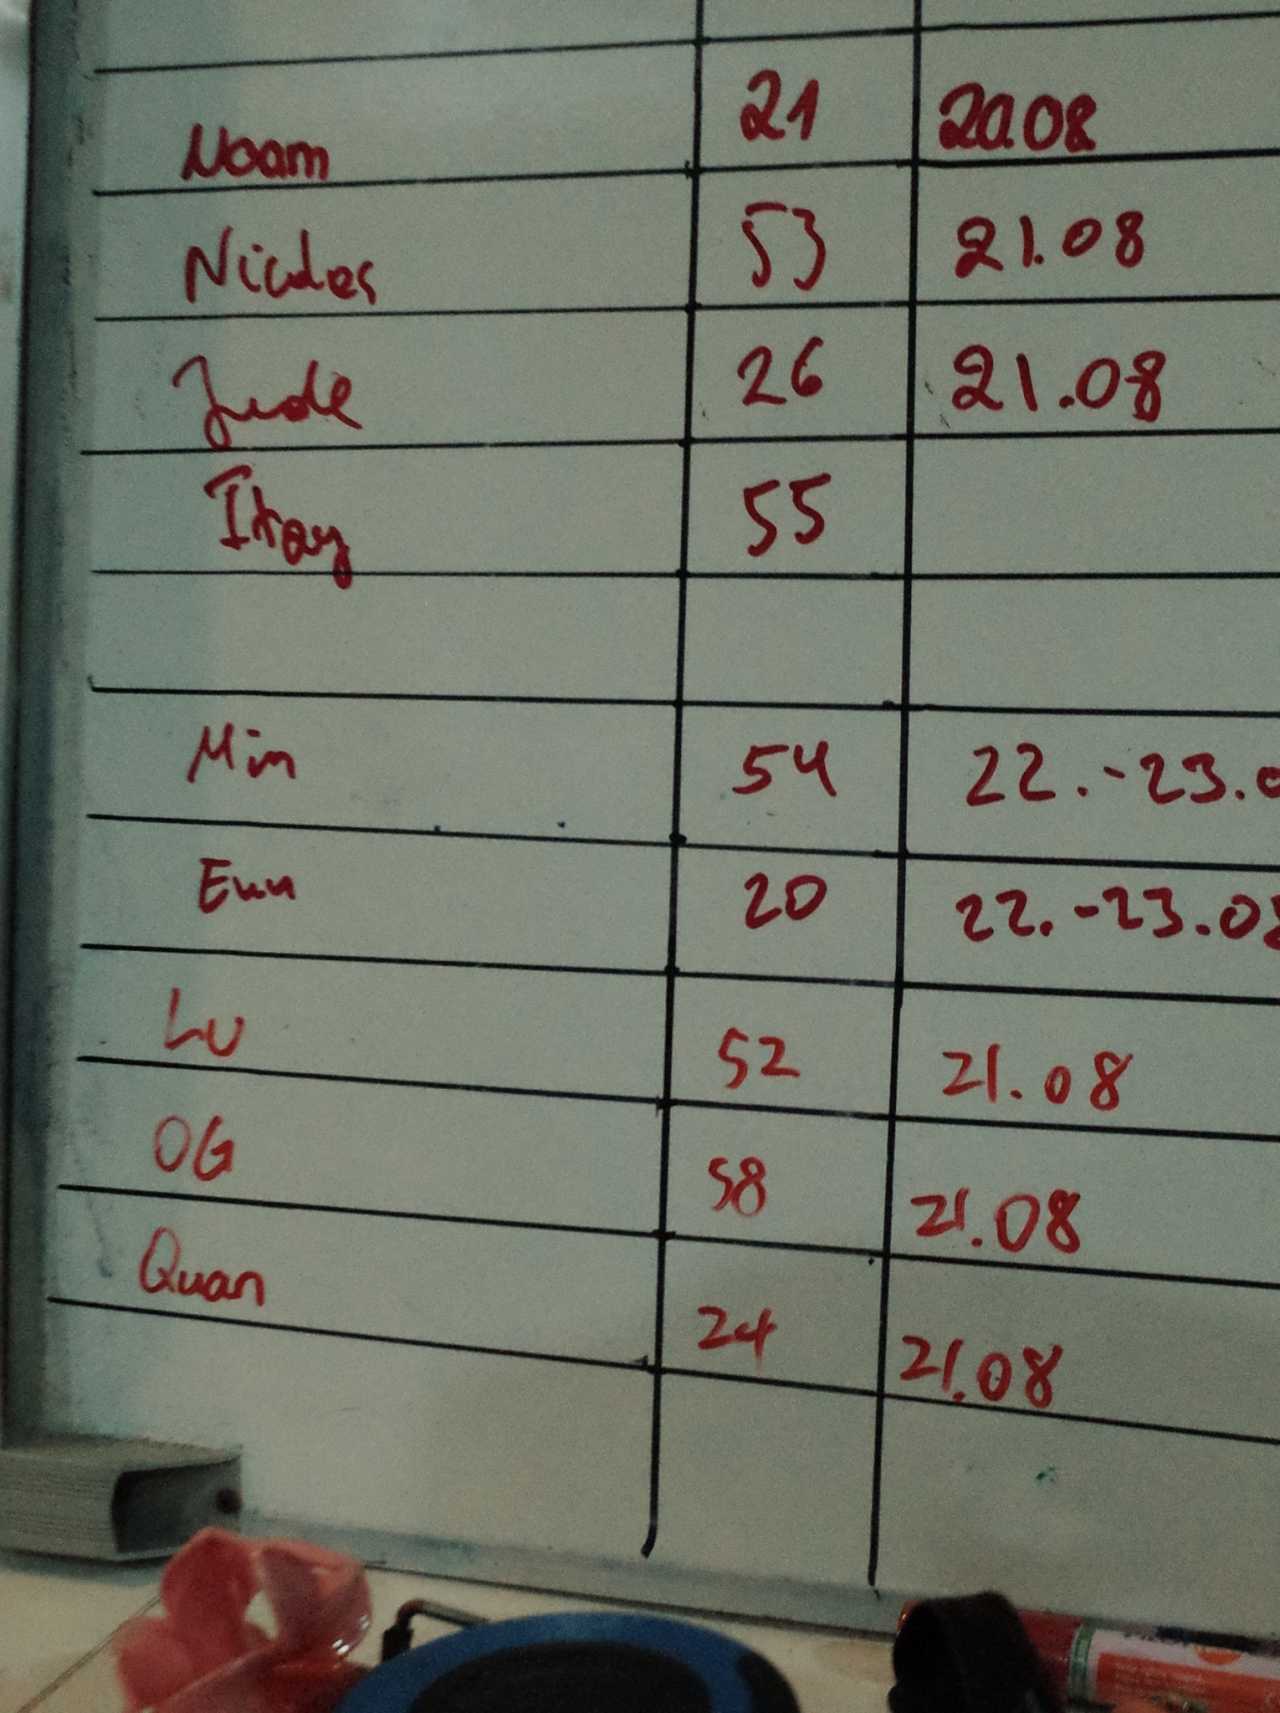 Noam 21 20.08
Nicolas 53 21.08
Jude 26 21.08
Itay 55
Min 54 22.-23.0
20 22.-23.08
Lu 52 21.08
OG 58 21.08
Quan 24 21.08